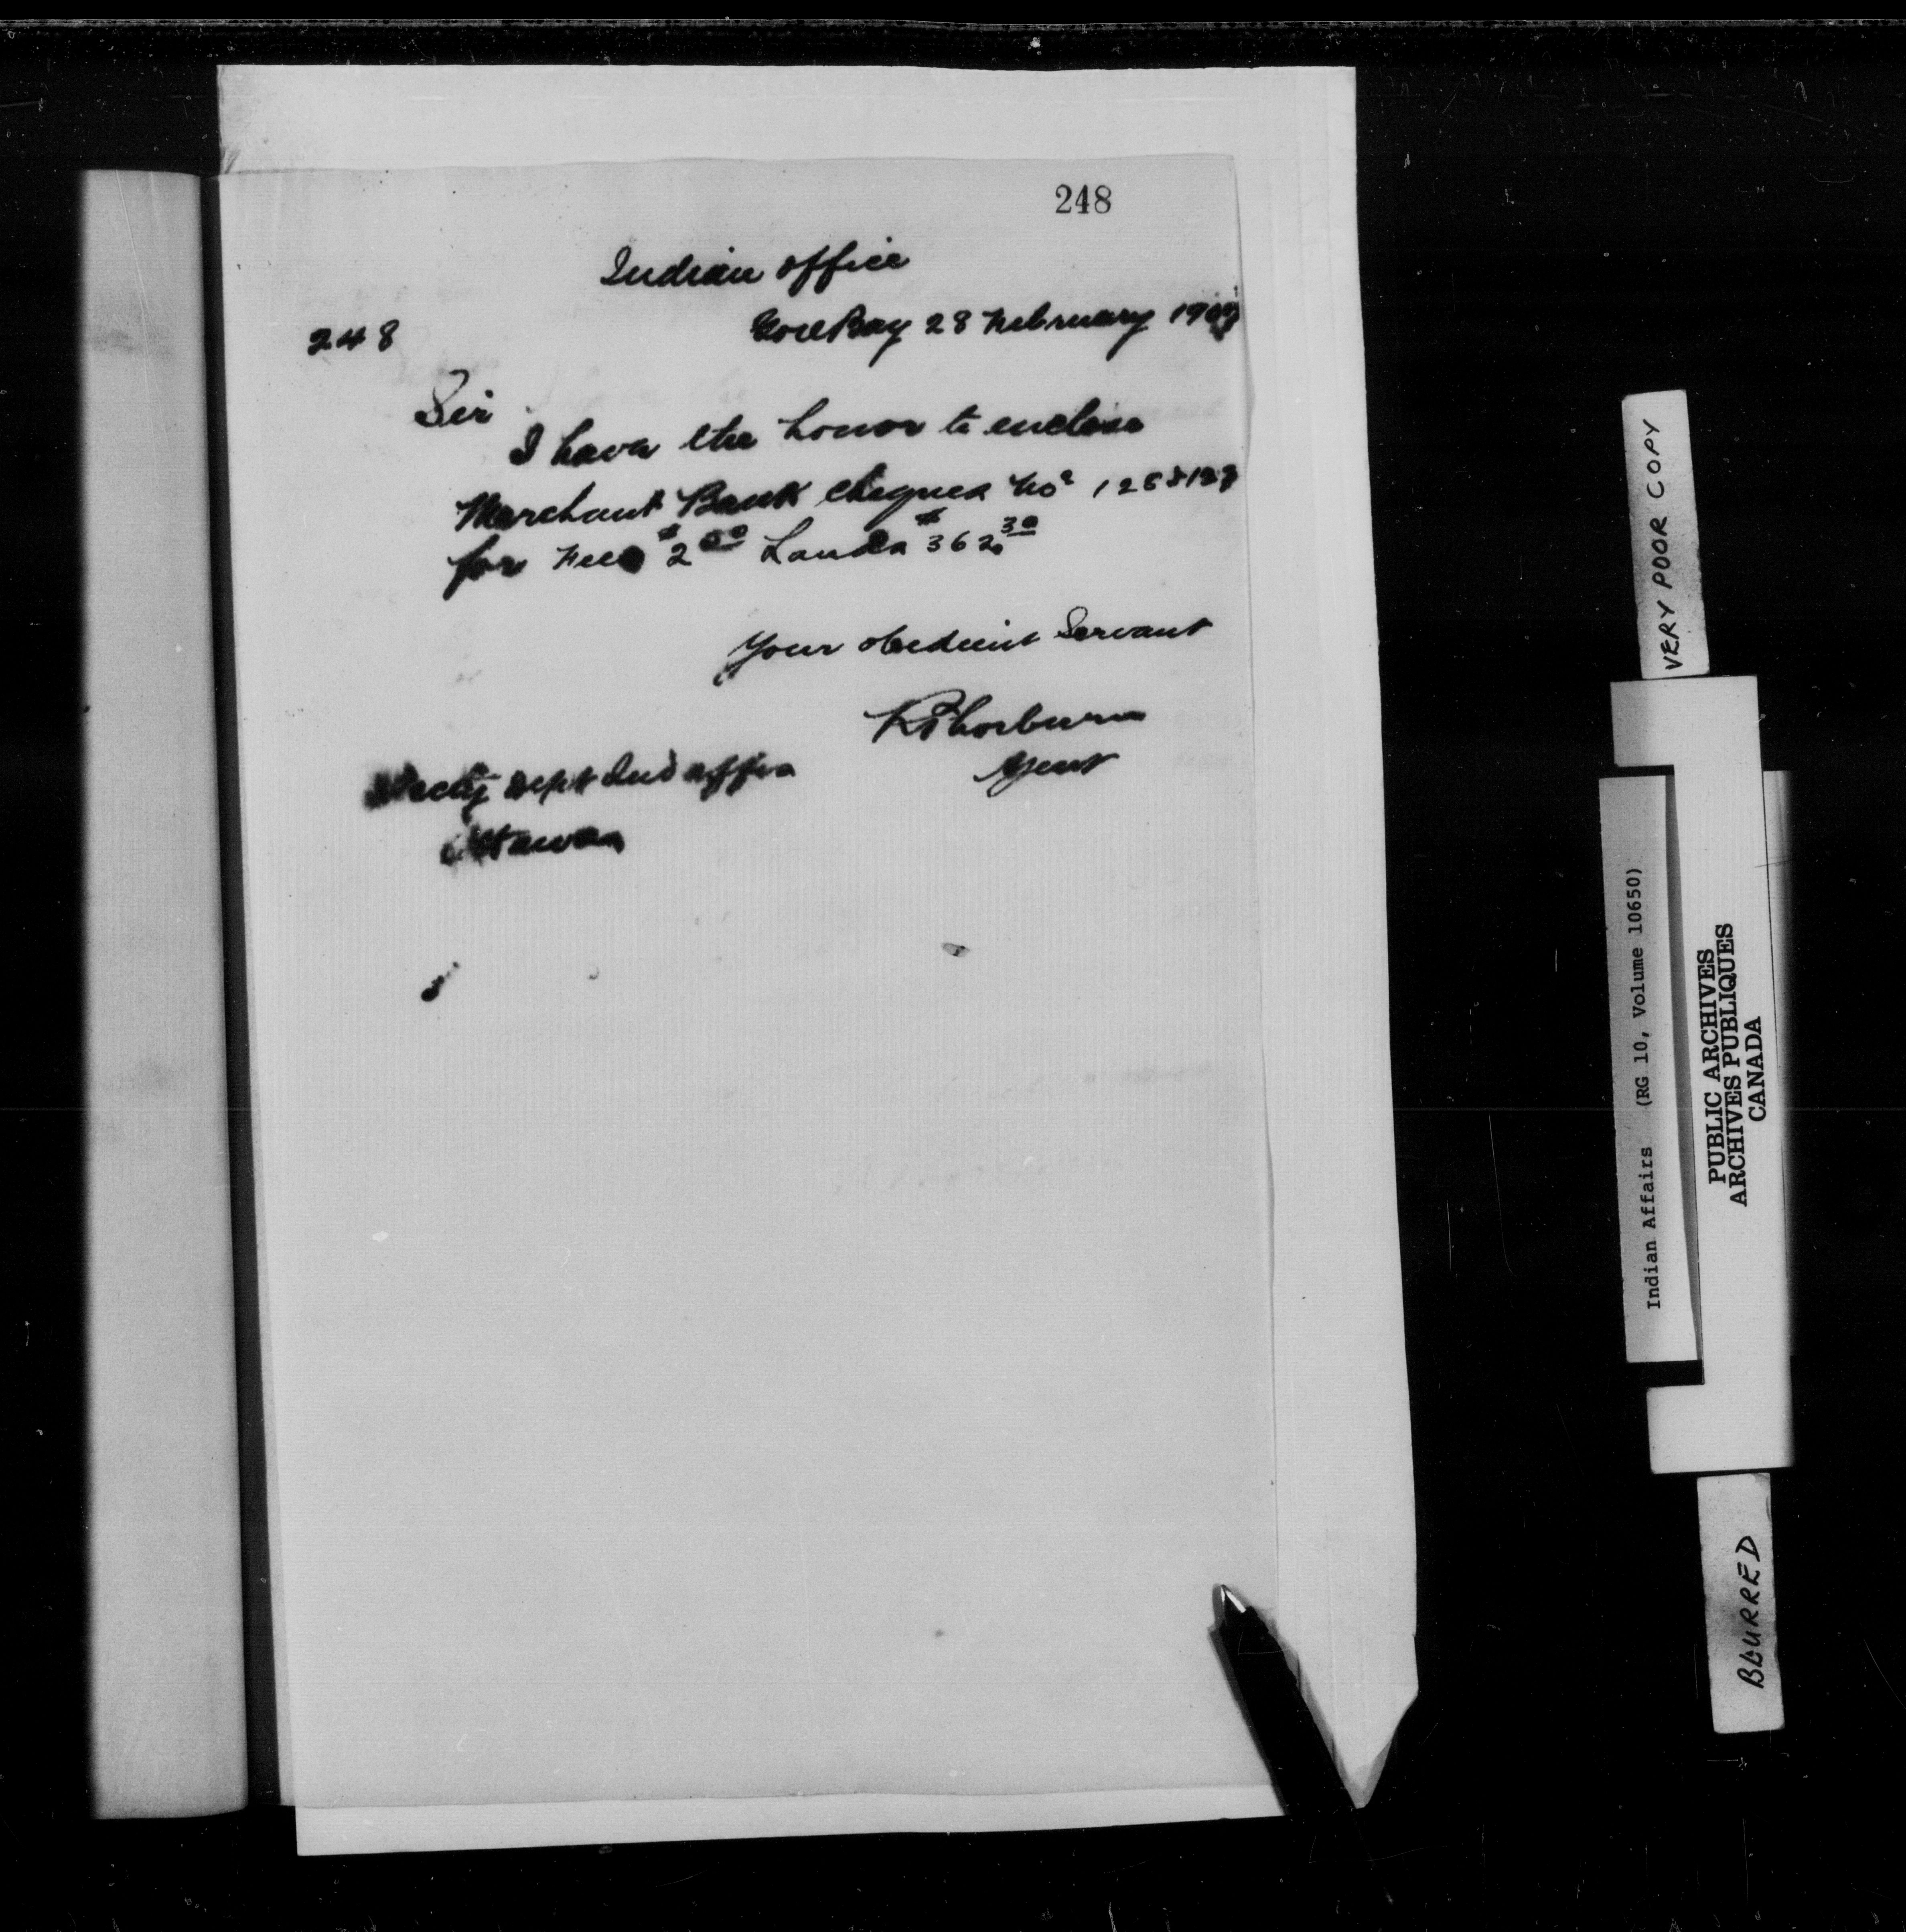 248
Indian Office
248
Gore Bay 28 February 190
Sir
I have the honor to enclose
Merchant Bank cheques Nos
for Fees $2 00 Lands $362 30
Your obedient Servant
R Thorburn
Agent
Secty Dept Ind Affrs
Ottawa
VERY POOR COPY
Indian Affairs (RG 10, Volume 10650)
PUBLIC ARCHIVES
ARCHIVES PUBLIQUES
CANADA
BLURRED